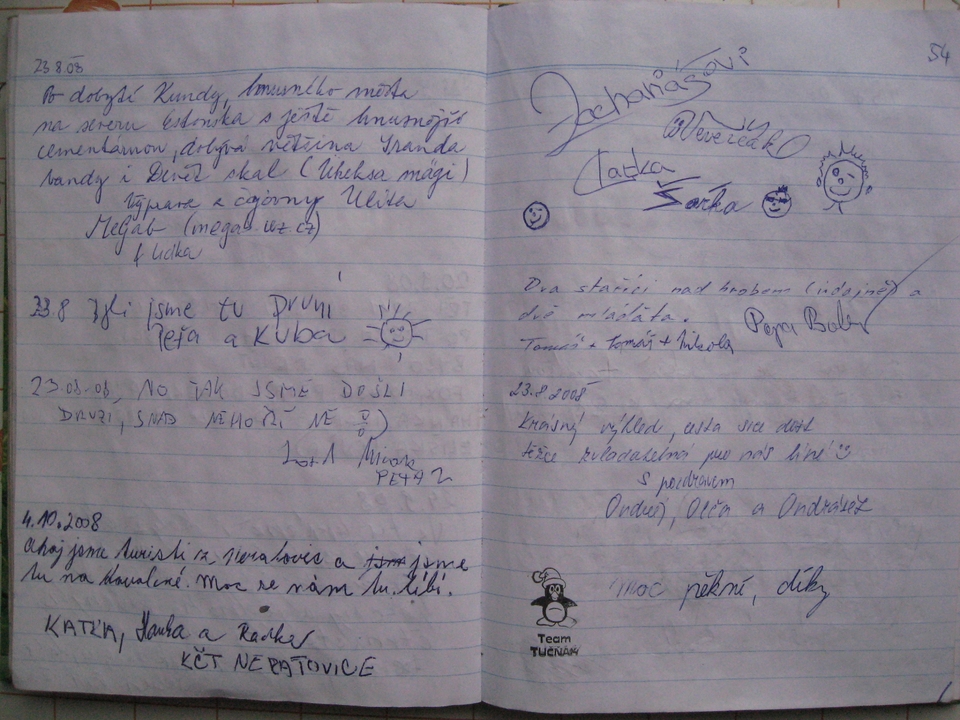 23.8.08
Po dobytí Kundy, hnusného města
na severu Estonska s ještě hnusnější
cementárnou, dobývá většina Granda
bandy i Devět skal (Üheksa mägi)
Výprava z čajovny Ulita
MeGab (megab.wz.cz)
& Lidka
23.8 Byli jsme tu PRVNÍ
Peťa a KUBA
23.08.08, NO TAK JSME DOŠLI
DRUZÍ, SNAD NEHOŘÍ NE
PETA 2
4.10.2008
Ahoj jsme turisti z neratovic a jsme jsme
tu na dovolené. Moc se nám tu líbí.
KATKA, Hanka a Radka
KČT NERATOVICE
54
Zachariášovi
Veverčák
Katka
Šárka
Dva staříci nad hrobem (údajně) a
dvě mláďata.
Pepa
Tomáš + Tomáš + Nikola
23.8.2008
Krásný výhled, cesta sice dost
těžce zvladatelná pro nás líné
S pozdravem
Ondřej, Olča a Ondrášek
moc pěkné, díky
Team
TUČŇÁK